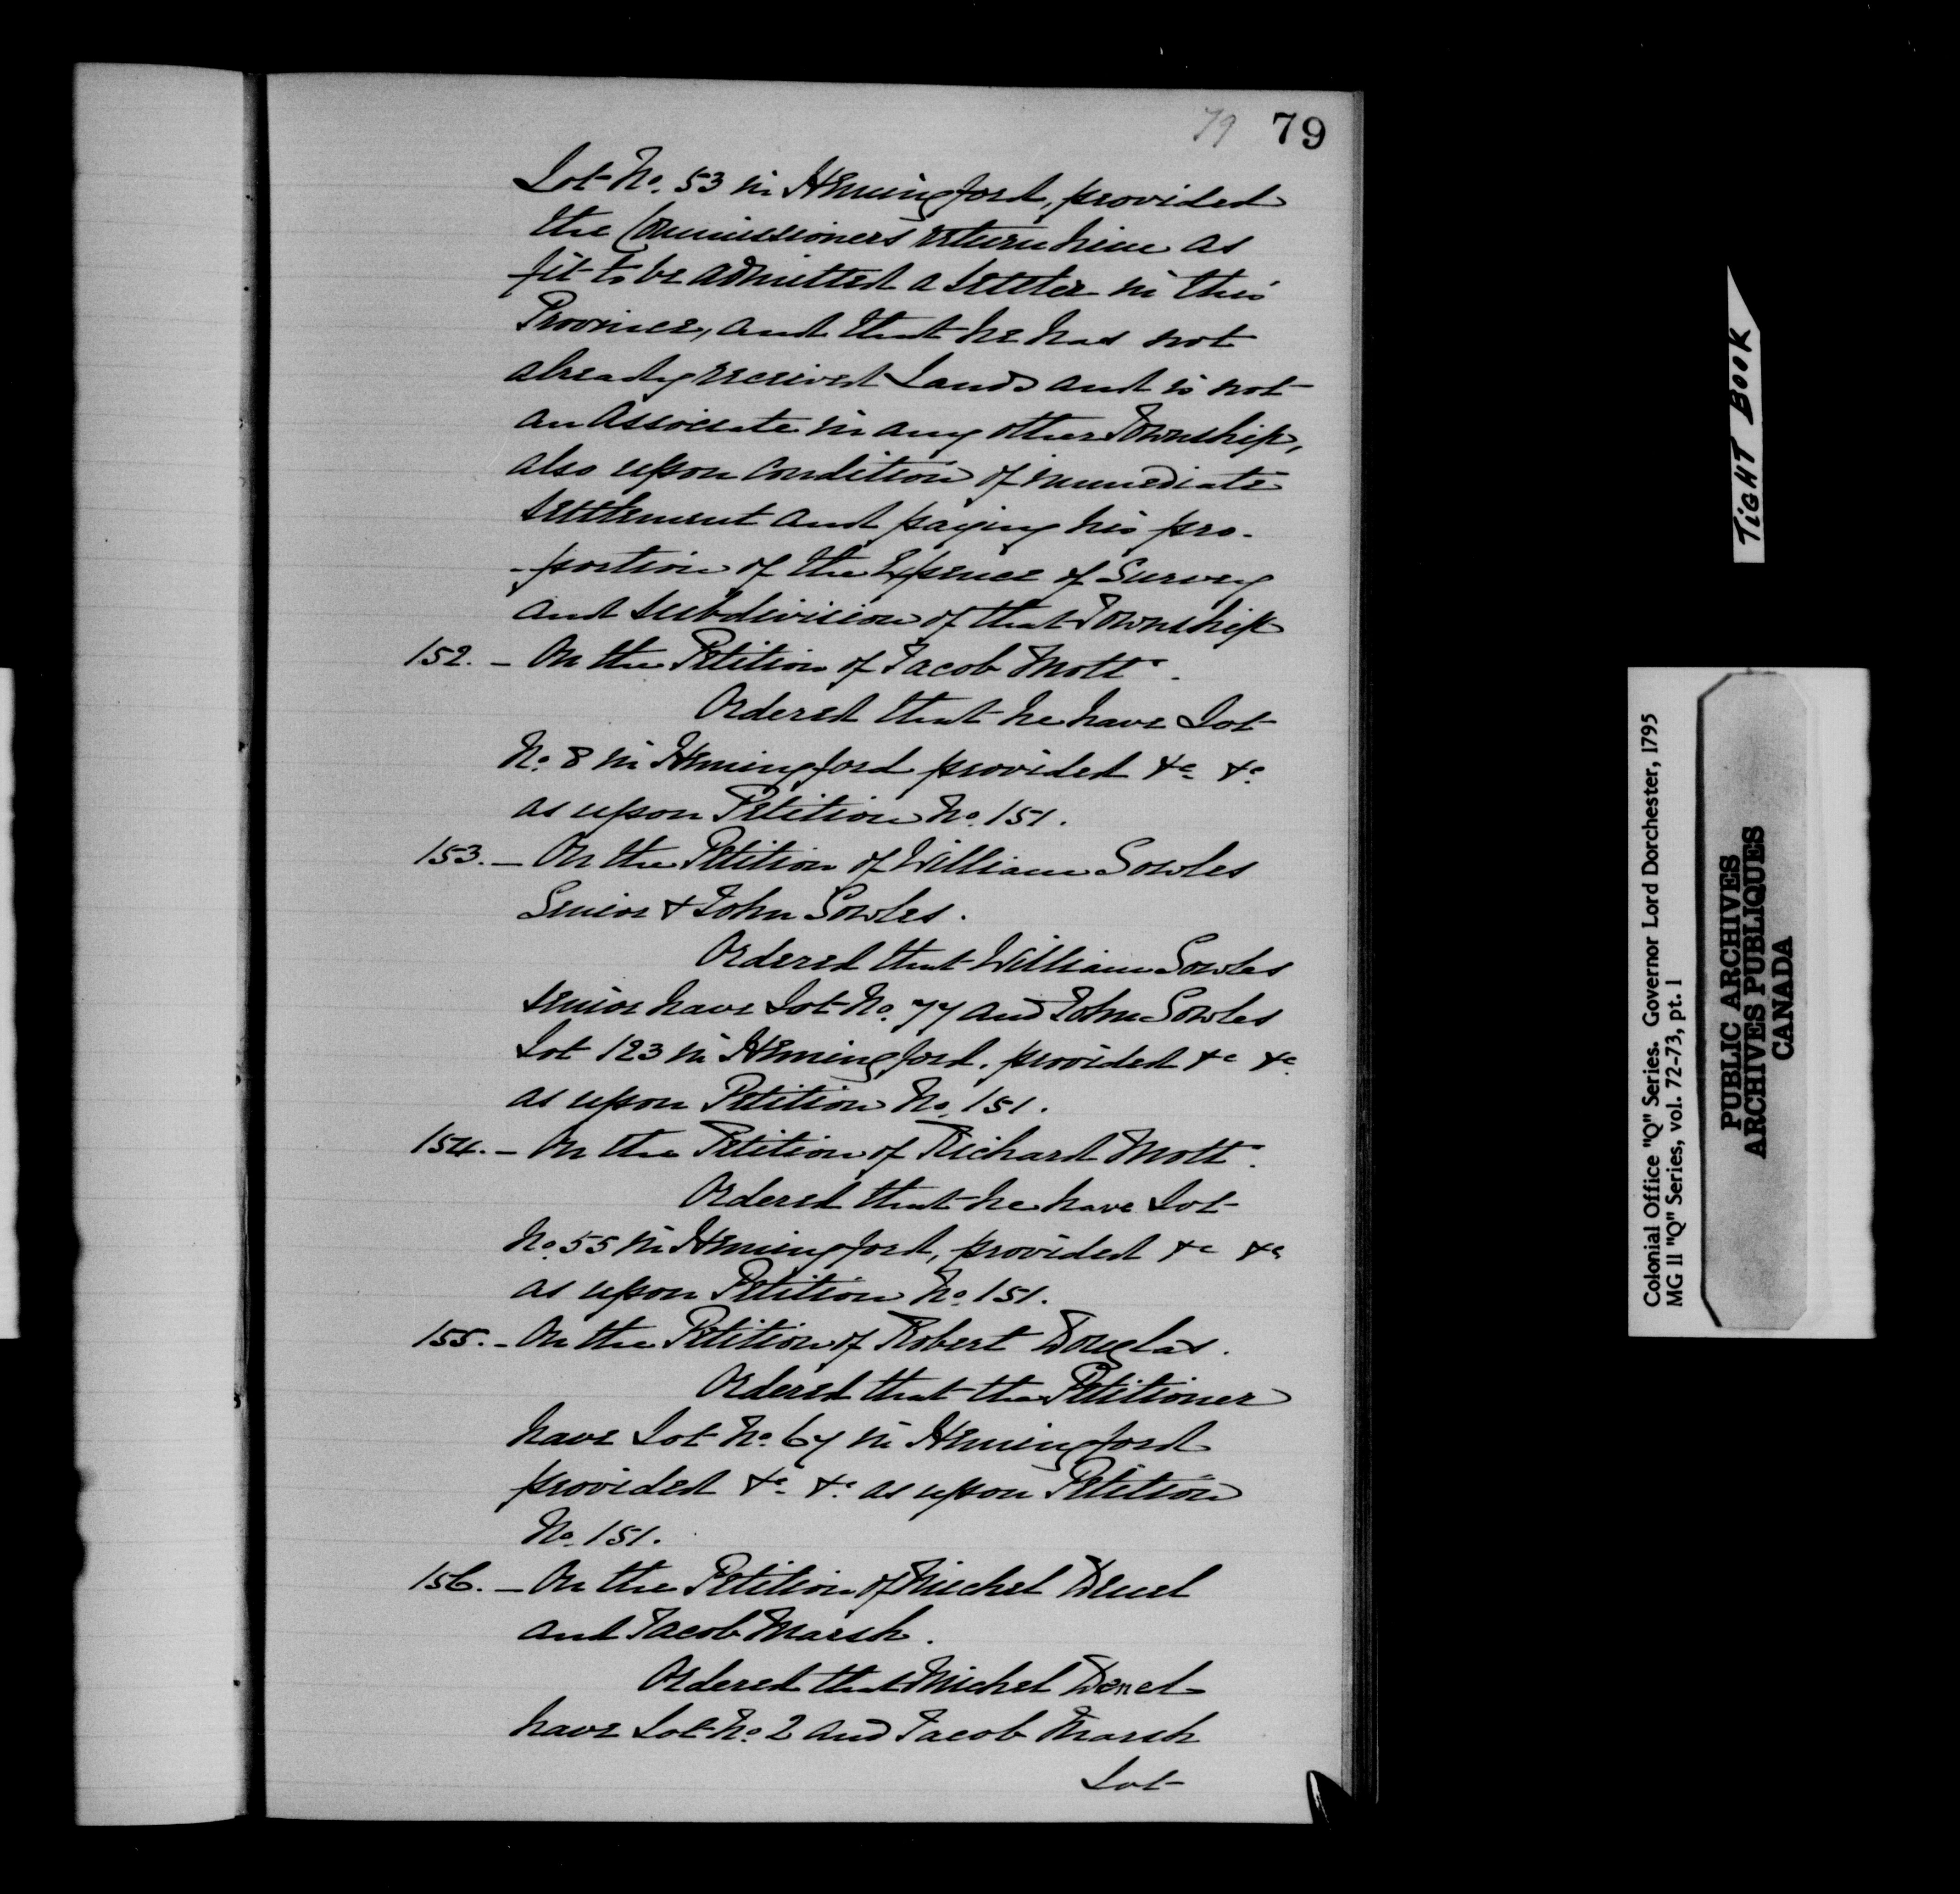 79 79
Lot No. 53 in Hemingford, provided
the Commissioners return him as
fit to be admitted a settler in this
Province, and that he has not
already received Lands and is not
an Associate in any other Township,
also upon condition of immediate
settlement and paying his pro-
-portion of the Expence of Survey
and subdivision of that Township
152. - On the Petition of Jacob Mott.
Ordered that he have Lot
No. 8 in Hemingford provided &c. &c.
as upon Petition No. 151.
153. - On the Petition of William Sowles
Senior & John Sowles.
Ordered that William Sowles
senior have Lot No. 77 and John Sowles
Lot 123 in Hemingford. provided &c &c.
as upon Petition No. 151.
154. - On the Petition of Richard Mott.
Ordered that he have Lot
No. 55 in Hemingford, provided &c &c
as upon Petition No. 151.
155. - On the Petition of Robert Douglas.
Ordered that the Petitioner
have Lot No. 67 in Hemingford
provided &c. &c. as upon Petition
No. 151.
156. - On the Petition of Michel
and Jacob Marsh.
Ordered that Michel
have Lot No. 2 and Jacob Marsh
Lot
TIGHT BOOK
Colonial Office "Q" Series. Governor Lord Dorchester, 1795
MG 11 "Q" Series, vol. 72-73, pt. 1
PUBLIC ARCHIVES
ARCHIVES PUBLIQUES
CANADA